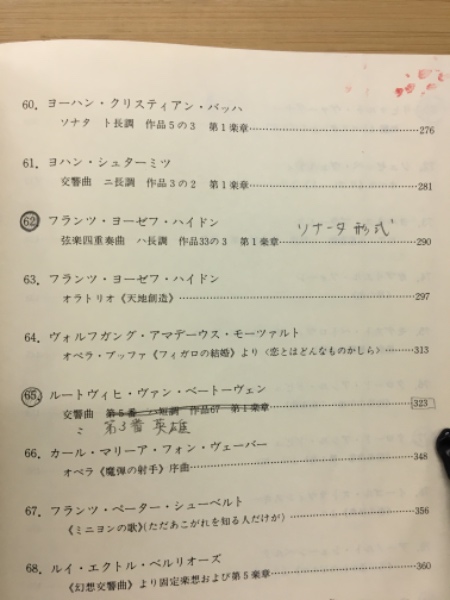 60. ヨーハン・クリスティアン・バッハ
ソナタ ト長調 作品5の3 第1楽章……276
61. ヨハン・シュターミツ
交響曲 ニ長調 作品3の2 第1楽章……281
62. フランツ・ヨーゼフ・ハイドン
ソナータ形式
弦楽四重奏曲 ハ長調 作品33の3 第1楽章……290
63. フランツ・ヨーゼフ・ハイドン
オラトリオ《天地創造》……297
64. ヴォルフガング・アマデーウス・モーツァルト
オペラ・ブッファ《フィガロの結婚》より〈恋とはどんなものかしら〉……313
65. ルートヴィヒ・ヴァン・ベートーヴェン
交響曲 第5番 ハ短調 作品67 第1楽章……323
第3番 英雄
66. カール・マリーア・フォン・ヴェーバー
オペラ《魔弾の射手》序曲……348
67. フランツ・ペーター・シューベルト
《ミニヨンの歌》(ただあこがれを知る人だけが)……356
68. ルイ・エクトル・ベルリオーズ
《幻想交響曲》より固定楽想および第5楽章……360